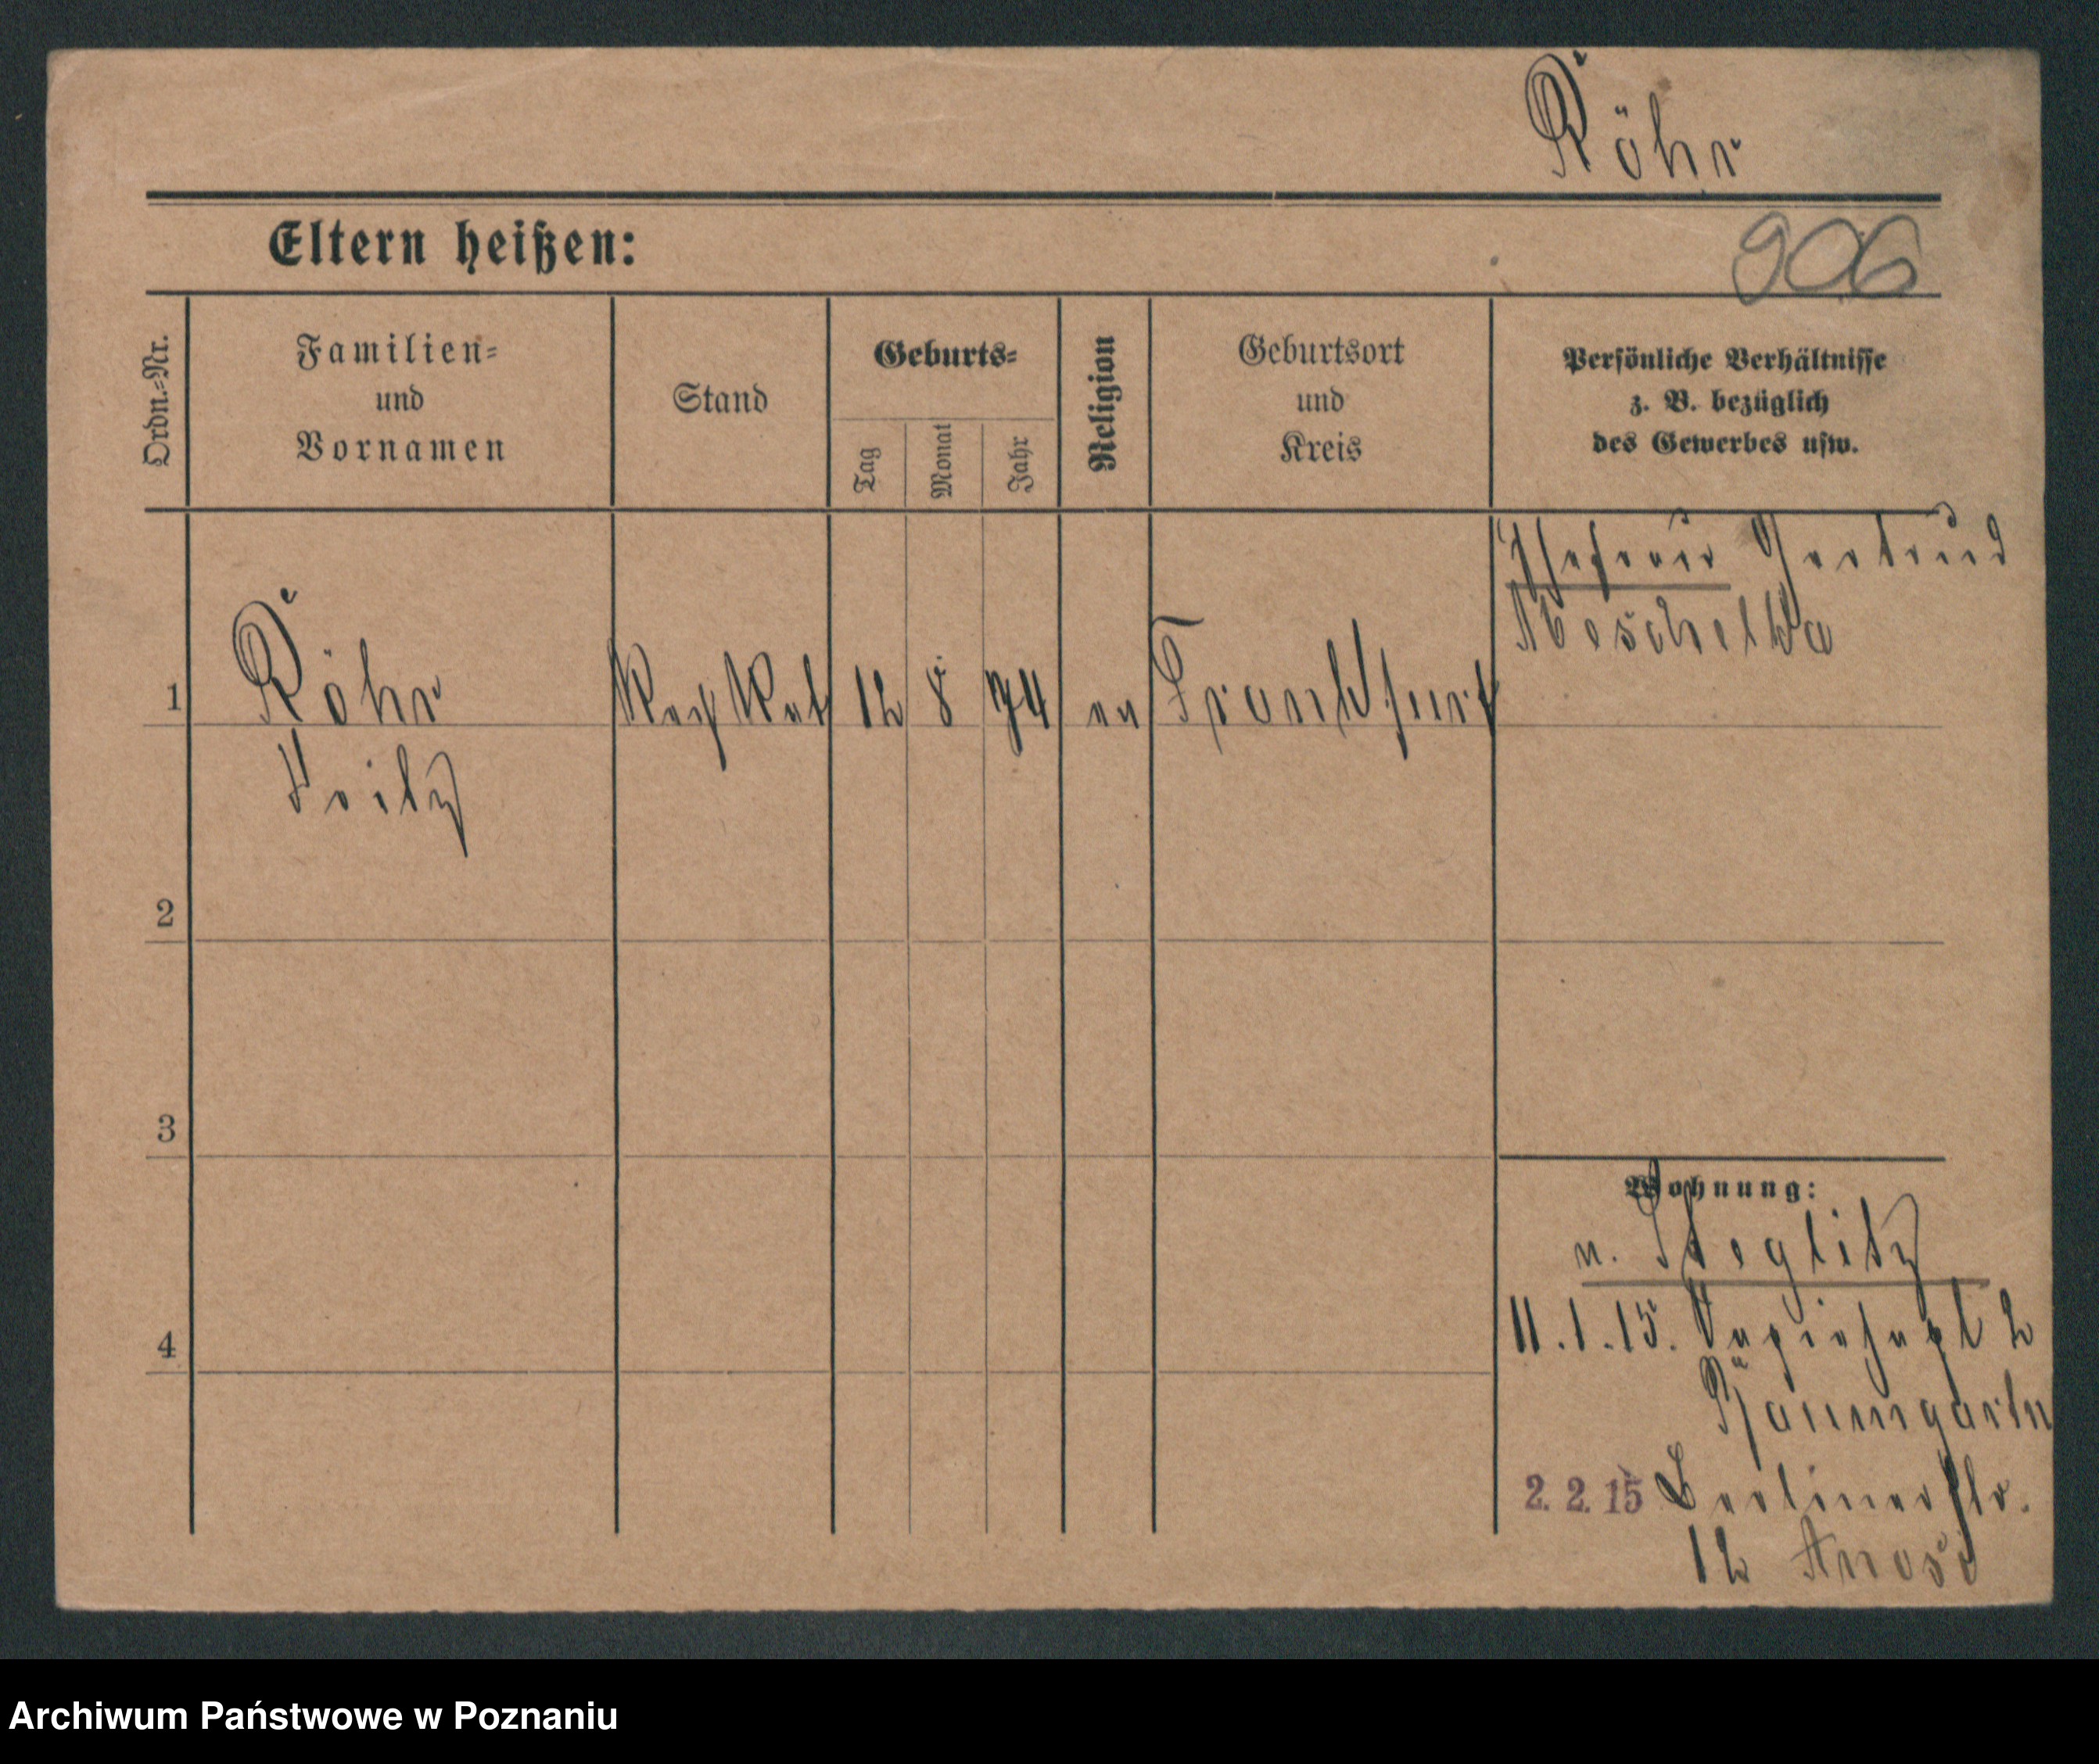 Röhr
Eltern heißen:
906
Ordn.=Nr.
Familien=
und
Vornamen
Stand
Geburts=
Tag
Monat
Jahr
Religion
Geburtsort
und
Kreis
Persönliche Verhältnisse
z. B. bezüglich
des Gewerbes usw.
Ehefrau Gertrud
1
Röhr
Reg Rat
12
8
74
ev
Frankfurt
Fritz
2
3
4
Wohnung:
v. Steglitz
11.1.15.
2
Baumgartn
2. 2. 15 Berlinerstr.
12
Archiwum Państwowe w Poznaniu